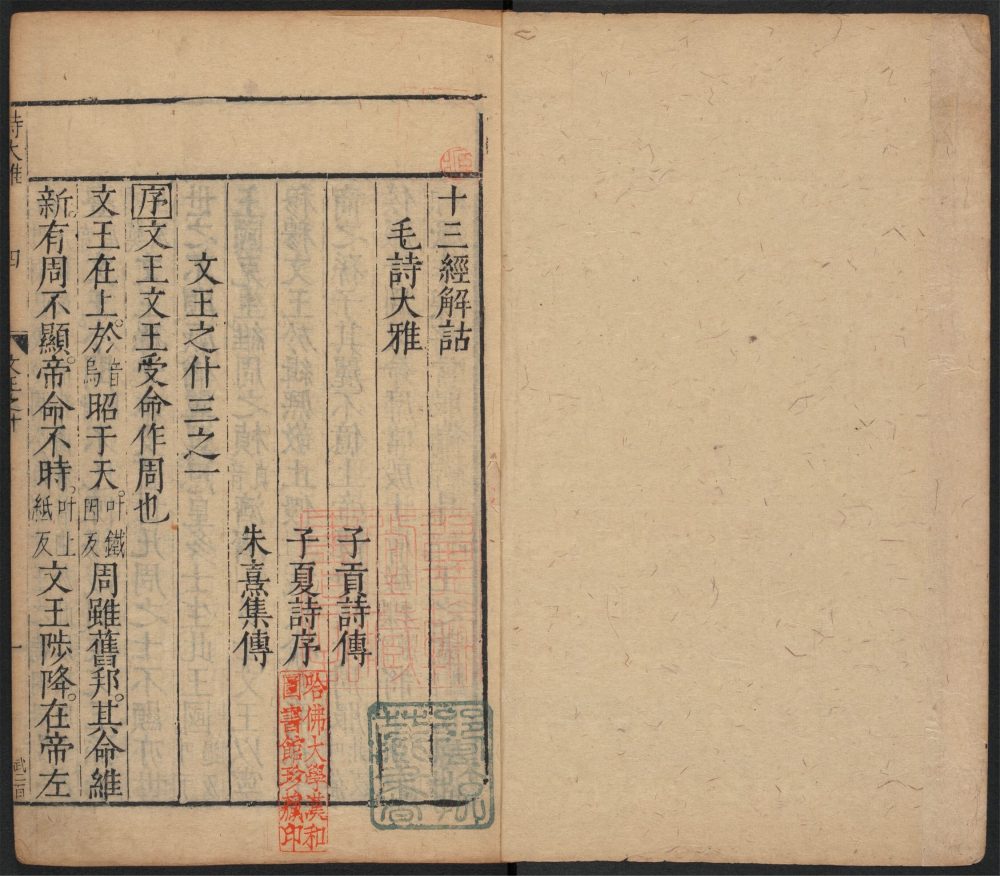 十三經解詁
毛詩大雅
子貢詩傳
子夏詩序
朱熹集傳
文王之什三之一
序文王文王受命作周也
文王在上。於音烏昭于天。叶鐵因反周雖舊邦。其命維
新。有周不顯。帝命不時。叶上紙反文王陟降。在帝左
詩大雅 四 文王之什 一
哈佛大學漢和
圖書館珍藏印